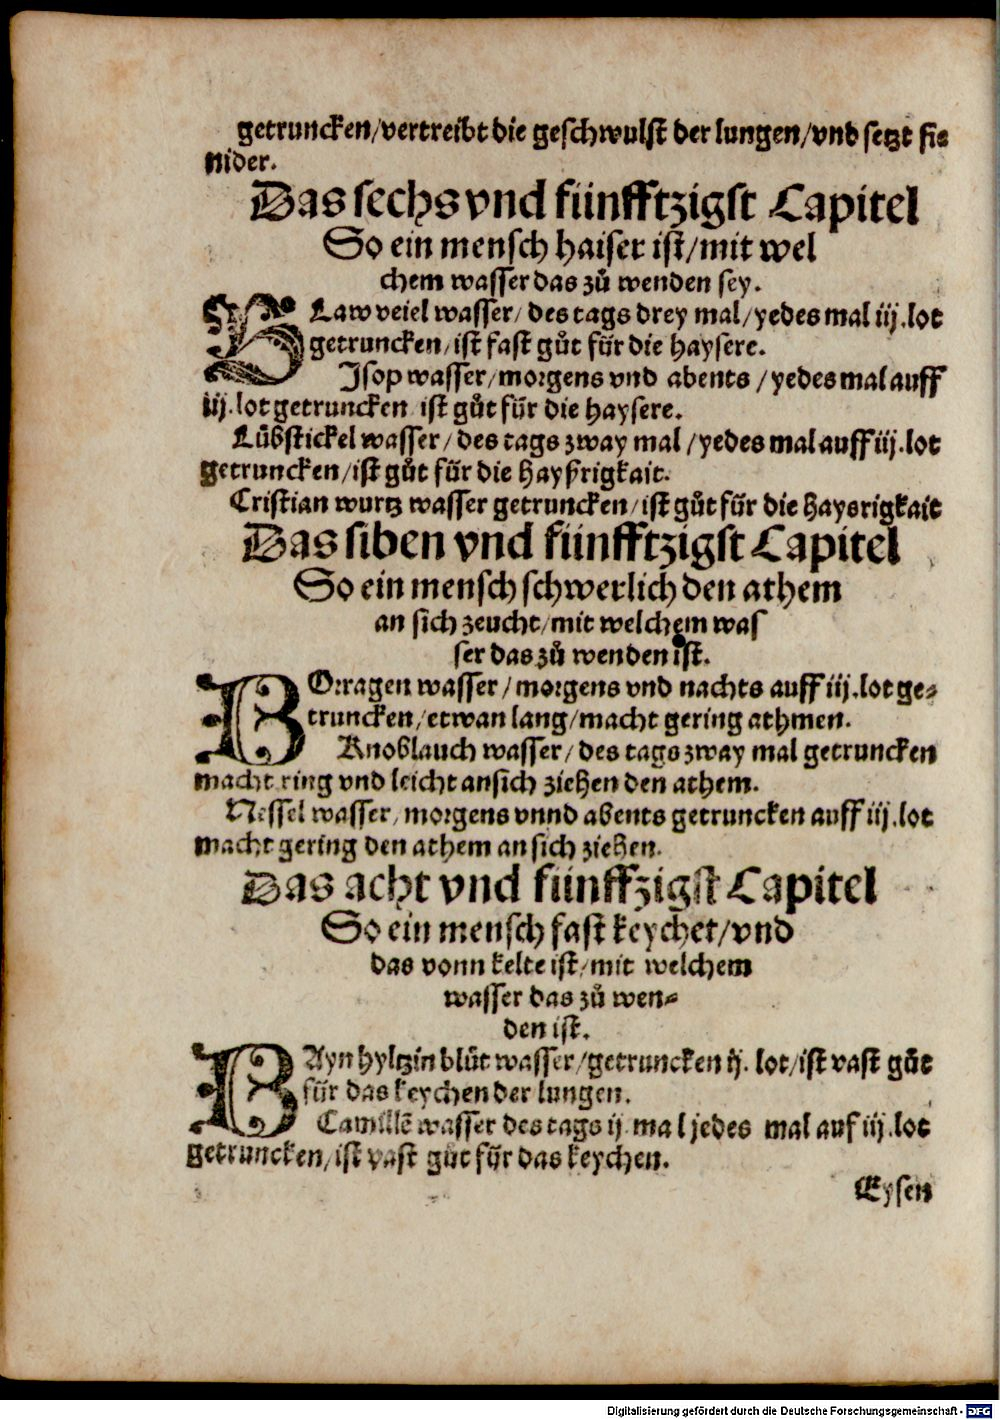 getruncken/vertreibt die geschwulst der lungen/vnd setzt sie
nider.
Das sechs vnd fünfftzigst Capitel
So ein mensch haiser ist/mit wel
chem wasser das zů wenden sey.
BLaw veiel wasser/des tags drey mal/yedes mal iij.lot
getruncken/ist fast gůt für die haysere.
Jsop wasser/morgens vnd abents/yedes mal auff
iij.lot getruncken ist gůt für die haysere.
Lübstickel wasser/des tags zway mal/yedes mal auff iij.lot
getruncken/ist gůt für die hayßrigkait.
Cristian wurtz wasser getruncken/ist gůt für die haysrigkait
Das siben vnd fünfftzigst Capitel
So ein mensch schwerlich den athem
an sich zeucht/mit welchem was
ser das zů wenden ist.
BOrragen wasser/morgens vnd nachts auff iij.lot ge-
truncken/etwan lang/macht gering athmen.
Knoblauch wasser/des tags zway mal getruncken
macht ring vnd leicht ansich ziehen den athem.
Nessel wasser/morgens vnnd abents getruncken auff iij.lot
macht gering den athem an sich ziehen.
Das acht vnd fünffzigst Capitel
So ein mensch fast keychet/vnd
das vonn kelte ist/mit welchem
wasser das zů wen-
den ist.
BAyn hyltzin blůt wasser/getruncken ij. lot/ist vast gůt
für das keychen der lungen.
Camillē wasser des tags ij mal jedes mal auf iij.lot
getruncken/ist vast gůt für das keychen.
Eysen
Digitalisierung gefördert durch die Deutsche Forschungsgemeinschaft - DFG